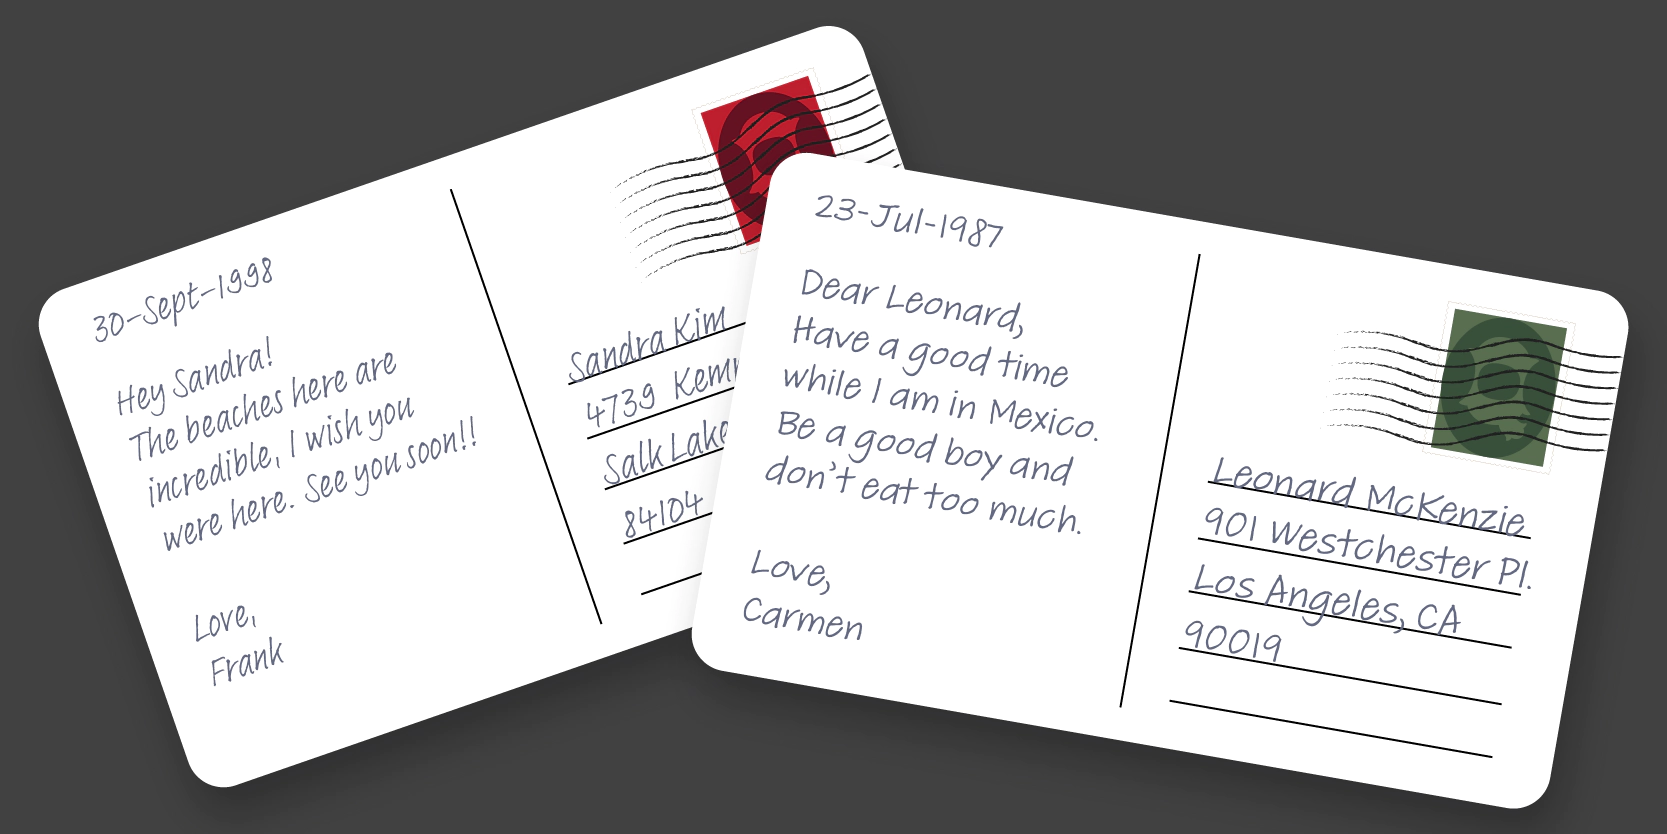 30-Sept-1998
Hey Sandra!
The beaches here are
incredible, I wish you
were here. See you soon!!
Love,
Frank
Sandra Kim
4739
Salk Lake
84104
23-Jul-1987
Dear Leonard,
Have a good time
while I am in Mexico.
Be a good boy and
don't eat too much.
Love,
Carmen
Leonard McKenzie
901 Westchester Pl.
Los Angeles, CA
90019